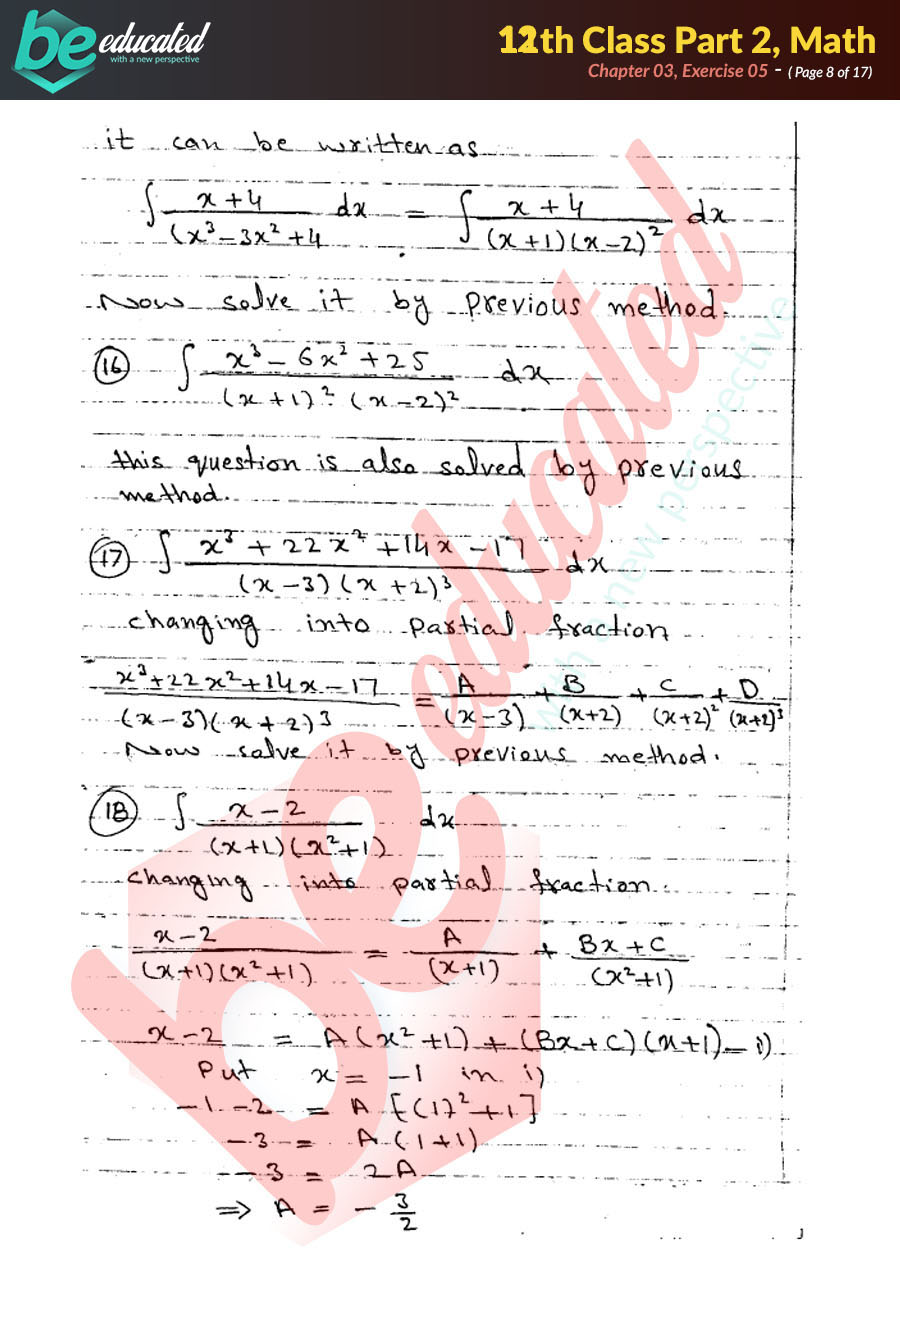 be educated
with a new perspective
12th Class Part 2, Math
Chapter 03, Exercise 05 - ( Page 8 of 17)
it can be written as
∫ x+4 / (x³-3x²+4 dx = ∫ x+4 / (x+1)(x-2)² dx
Now solve it by previous method.
(16) ∫ x³-6x²+25 / (x+1)² (x-2)² dx
this question is also solved by previous
method.
(17) ∫ x³+22x²+14x-17 / (x-3)(x+2)³ dx
changing into partial fraction
x³+22x²+14x-17 / (x-3)(x+2)³ = A/(x-3) + B/(x+2) + C/(x+2)² + D/(x+2)³
Now solve it by previous method.
(18) ∫ x-2 / (x+1)(x²+1) dx
changing into partial fraction.
x-2 / (x+1)(x²+1) = A/(x+1) + Bx+C/(x²+1)
x-2 = A(x²+1) + (Bx+C)(x+1) - i)
Put x = -1 in i)
-1-2 = A [(1)²+1]
-3 = A(1+1)
-3 = 2A
⇒ A = -3/2
be educated
with a new perspective